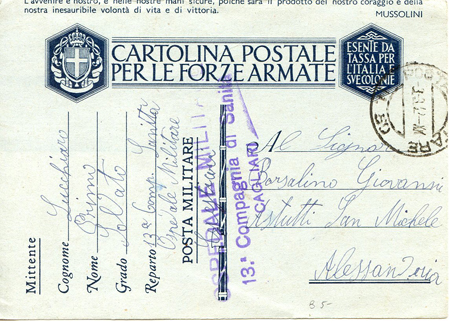 L'avvenire è nostro, è nelle nostre mani sicure, poichè sarà il prodotto del nostro coraggio e della
nostra inesauribile volontà di vita e di vittoria.
MUSSOLINI
CARTOLINA POSTALE
PER LE FORZE ARMATE
ESENTE DA
TASSA PER
L'ITALIA E
SUE COLONIE
Mittente
Cognome
Nome Primo
Grado Soldato
Reparto 13ª Comp. Sanità
Ospedale Militare
POSTA MILITARE
OSPEDALE MILIT
13.ª Compagnia di Sanità
CAGLIARI
Al Signor
Borsalino Giovanni
Istituti San Michele
Alessandria
8.5-